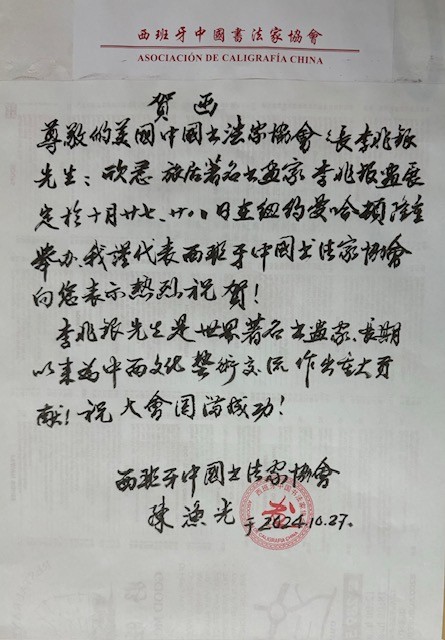 西班牙中國書法家協會
ASOCIACIÓN DE CALIGRAFÍA CHINA
贺函
尊敬的美國中國书法家協會会長李兆银
先生：欣悉旅居著名书画家李兆银画展
定於十月廿七、廿八日在纽约曼哈頓隆重
举办.我谨代表西班牙中國书法家协會
向您表示熱烈祝賀！
李兆银先生是世界著名书画家.長期
以来为中西文化藝術交流作出重大贡
献！祝大會园满成功！
西班牙中國书法家协會
陳漁光于2024.10.27。